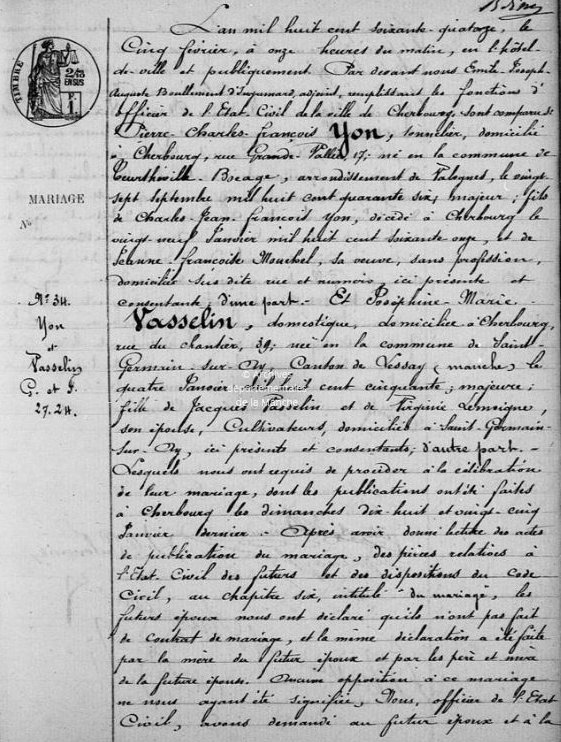 L'an mil huit cent soixante-quatorze, le
Cinq février, à onze heures du matin, en l'hôtel
de-ville et publiquement Par devant nous Emile Joseph
Auguste Boullement d'Ingremard, adjoint, remplissant les fonctions d'
officier de l'Etat Civil de la ville de Cherbourg, sont comparus:
Pierre-Charles-françois Yon, tonnelier, domicilié
à Cherbourg, rue Grande-Vallée, 17; né en la commune de
Teurthéville-Bocage, arrondissement de Valognes, le vingt
sept septembre mil huit cent quarante six, majeur; fils
de Charles-Jean-françois Yon, décédé à Cherbourg le
vingt neuf Janvier mil huit cent soixante onze, et de
Jeanne-françoise Mouchel, sa veuve, sans profession,
domiciliée sus dite rue et numéro, ici présente et
consentante, d'une part. Et Joséphine-Marie
Vasselin, domestique, domiciliée à Cherbourg,
rue du chantier, 39; née en la commune de Saint-
Germain-sur-Ay, Canton de Lessay (manche) le
quatre Janvier mil huit cent cinquante; majeure;
fille de Jacques Vasselin et de Virginie Lemoigne,
son épouse, Cultivateurs, domiciliés à Saint-Germain-
sur-Ay, ici présents et consentants; d'autre part.-
Lesquels nous ont requis de procéder à la célébration
de leur mariage, dont les publications ont été faites
à Cherbourg les dimanches dix-huit et vingt-cinq
Janvier dernier. Après avoir donné lecture des actes
de publication du mariage, des pièces relatives à
l'Etat-Civil des futurs et des dispositions du Code
Civil, au chapitre six, intitulé "du mariage", les
futurs époux nous ont déclaré qu'ils n'ont pas fait
de contrat de mariage, et la même déclaration a été faite
par la mère du futur époux et par les père et mère
de la future épouse. Aucune opposition à ce mariage
ne nous ayant été signifiée, Nous, officier de l'Etat
Civil, avons demandé au futur époux et à la
TIMBRE
MARIAGE
No
No 34.
Yon
et
Vasselin
G. et F.
27. 24.
© Archives
départementales
de la Manche